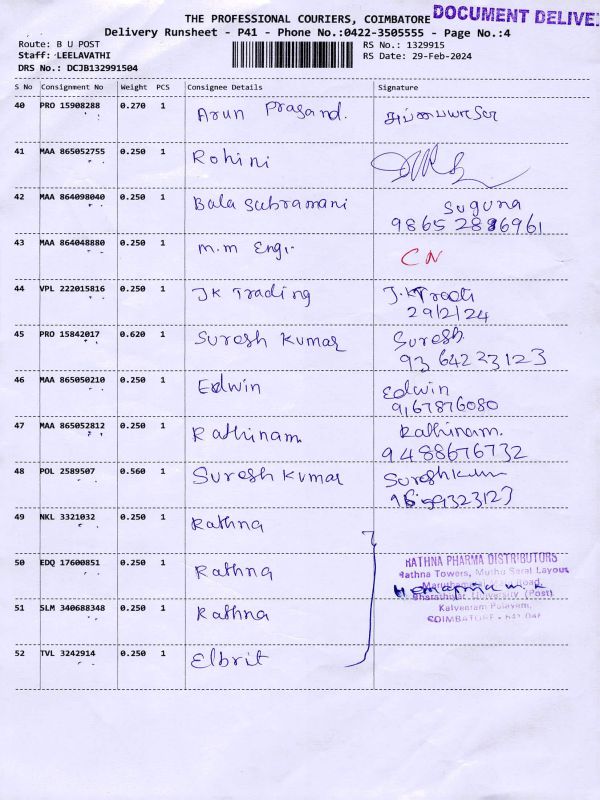 THE PROFESSIONAL COURIERS, COIMBATORE
DOCUMENT DELIVE
Delivery Runsheet - P41 - Phone No.:0422-3505555 - Page No.:4
Route: B U POST
RS No.: 1329915
Staff: LEELAVATHI
RS Date: 29-Feb-2024
DRS No.: DCJB132991504
S No Consignment No Weight PCS Consignee Details Signature
40 PRO 15908288 0.270 1 Arun Prasand.
41 MAA 865052755 0.250 1 Rohini
42 MAA 864098040 0.250 1 Bala Subramani Suguna
9865 2886961
43 MAA 864048880 0.250 1 m.m Engi. CN
44 VPL 222015816 0.250 1 JK Trading J.K Tradi
29/2/24
45 PRO 15842017 0.620 1 Suresh Kumar Suresh.
93 64223123
46 MAA 865050210 0.250 1 Edwin Edwin
9167876080
47 MAA 865052812 0.250 1 Rathinam Rathinam.
9488676732
48 POL 2589507 0.560 1 Suresh Kumar Sureshkum
49 NKL 3321032 0.250 1 Rathna
50 EDQ 17600851 0.250 1 Rathna
RATHNA PHARMA DISTRIBUTORS
Rathna Towers, Muthu Saral Layout
Bharathiar University (Post)
51 SLM 340688348 0.250 1 Rathna
Kalveeram Palayam,
COIMBATORE - 641 046
52 TVL 3242914 0.250 1 Elbrit